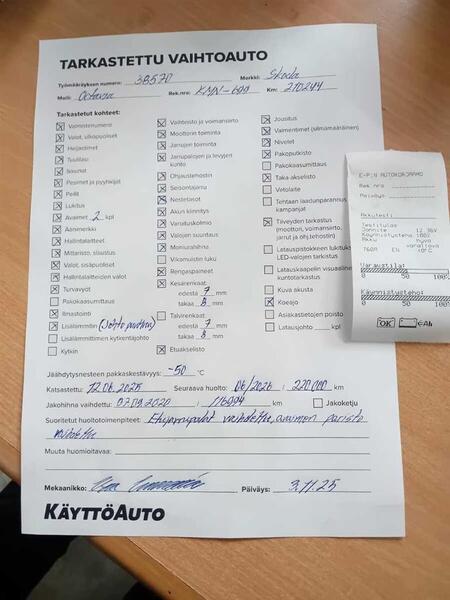 TARKASTETTU VAIHTOAUTO
Työmääräyksen numero: 3B570 Merkki: Skoda
Malli: Octavia Rek.nro: KMN-600 Km: 210244
Tarkastetut kohteet:
Valmistenumero
Valot, ulkopuoliset
Heijastimet
Tuulilasi
Ikkunat
Pesimet ja pyyhkijät
Peilit
Lukitus
Avaimet 2 kpl
Äänimerkki
Hallintalaitteet
Mittaristo, sisäistus
Valot, sisäpuoliset
Hallintalaitteiden valot
Turvavyöt
Pakokaasumittaus
Ilmastointi
Lisälämmitin (Johto puuttuu)
Lisälämmittimen kytkentäjohto
Kytkin
Vaihteisto ja voimansiirto
Moottorin toiminta
Jarrujen toiminta
Jarrupalojen ja levyjen kunto
Ohjaustehostin
Seisontajarru
Nestetasot
Akun kiinnitys
Varoituskolmio
Valojen suuntaus
Moniurahihna
Vikamuistin luku
Rengaspaineet
Kesärenkaat:
edestä 7 mm
takaa 8 mm
Talvirenkaat
edestä 7 mm
takaa 8 mm
Etuakselisto
Jousitus
Vaimentimet (silmämääräinen)
Nivelet
Pakoputkisto
Pakokaasumittaus
Taka-akselisto
Vetolaite
Tehtaan laadunparannus-
kampanjat
Tiiveyden tarkastus
(moottori, voimansiirto,
jarrut ja ohj.tehostin)
Latauspistokkeen lukitus
LED-valojen tarkistus
Latauskaapelin visuaalinen
kuntotarkastus
Kuva akusta
Koeajo
Asiakastietojen poisto
Latausjohto kpl
Jäähdytysnesteen pakkaskestävyys: -50 °C
Katsastettu: 12.06.2025 Seuraava huolto: 06/2026 / 220 000 km
Jakohihna vaihdettu: 07.09.2020 / 116994 km Jakoketju
Suoritetut huoltotoimenpiteet: Etujarrupalat vaihdettu, avaimen paristo
vaihdettu
Muuta huomioitavaa:
Mekaanikko: Päiväys: 3.11.25
KÄYTTÖAUTO
E-P:N AUTOKORJAAMO
Rek.nro
Päiväys
Akkutesti
Testitulos
Jännite 12.36V
Käynnistysteho: 100%
Akku hyvä
760A EN
Varaustila:
0 50 100%
Käynnistysteho:
0 50 100%
OK